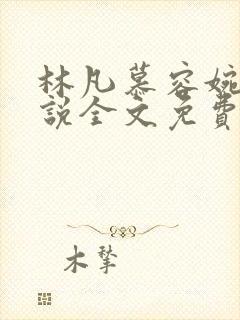 林凡慕容婉
說全文免費
木犂